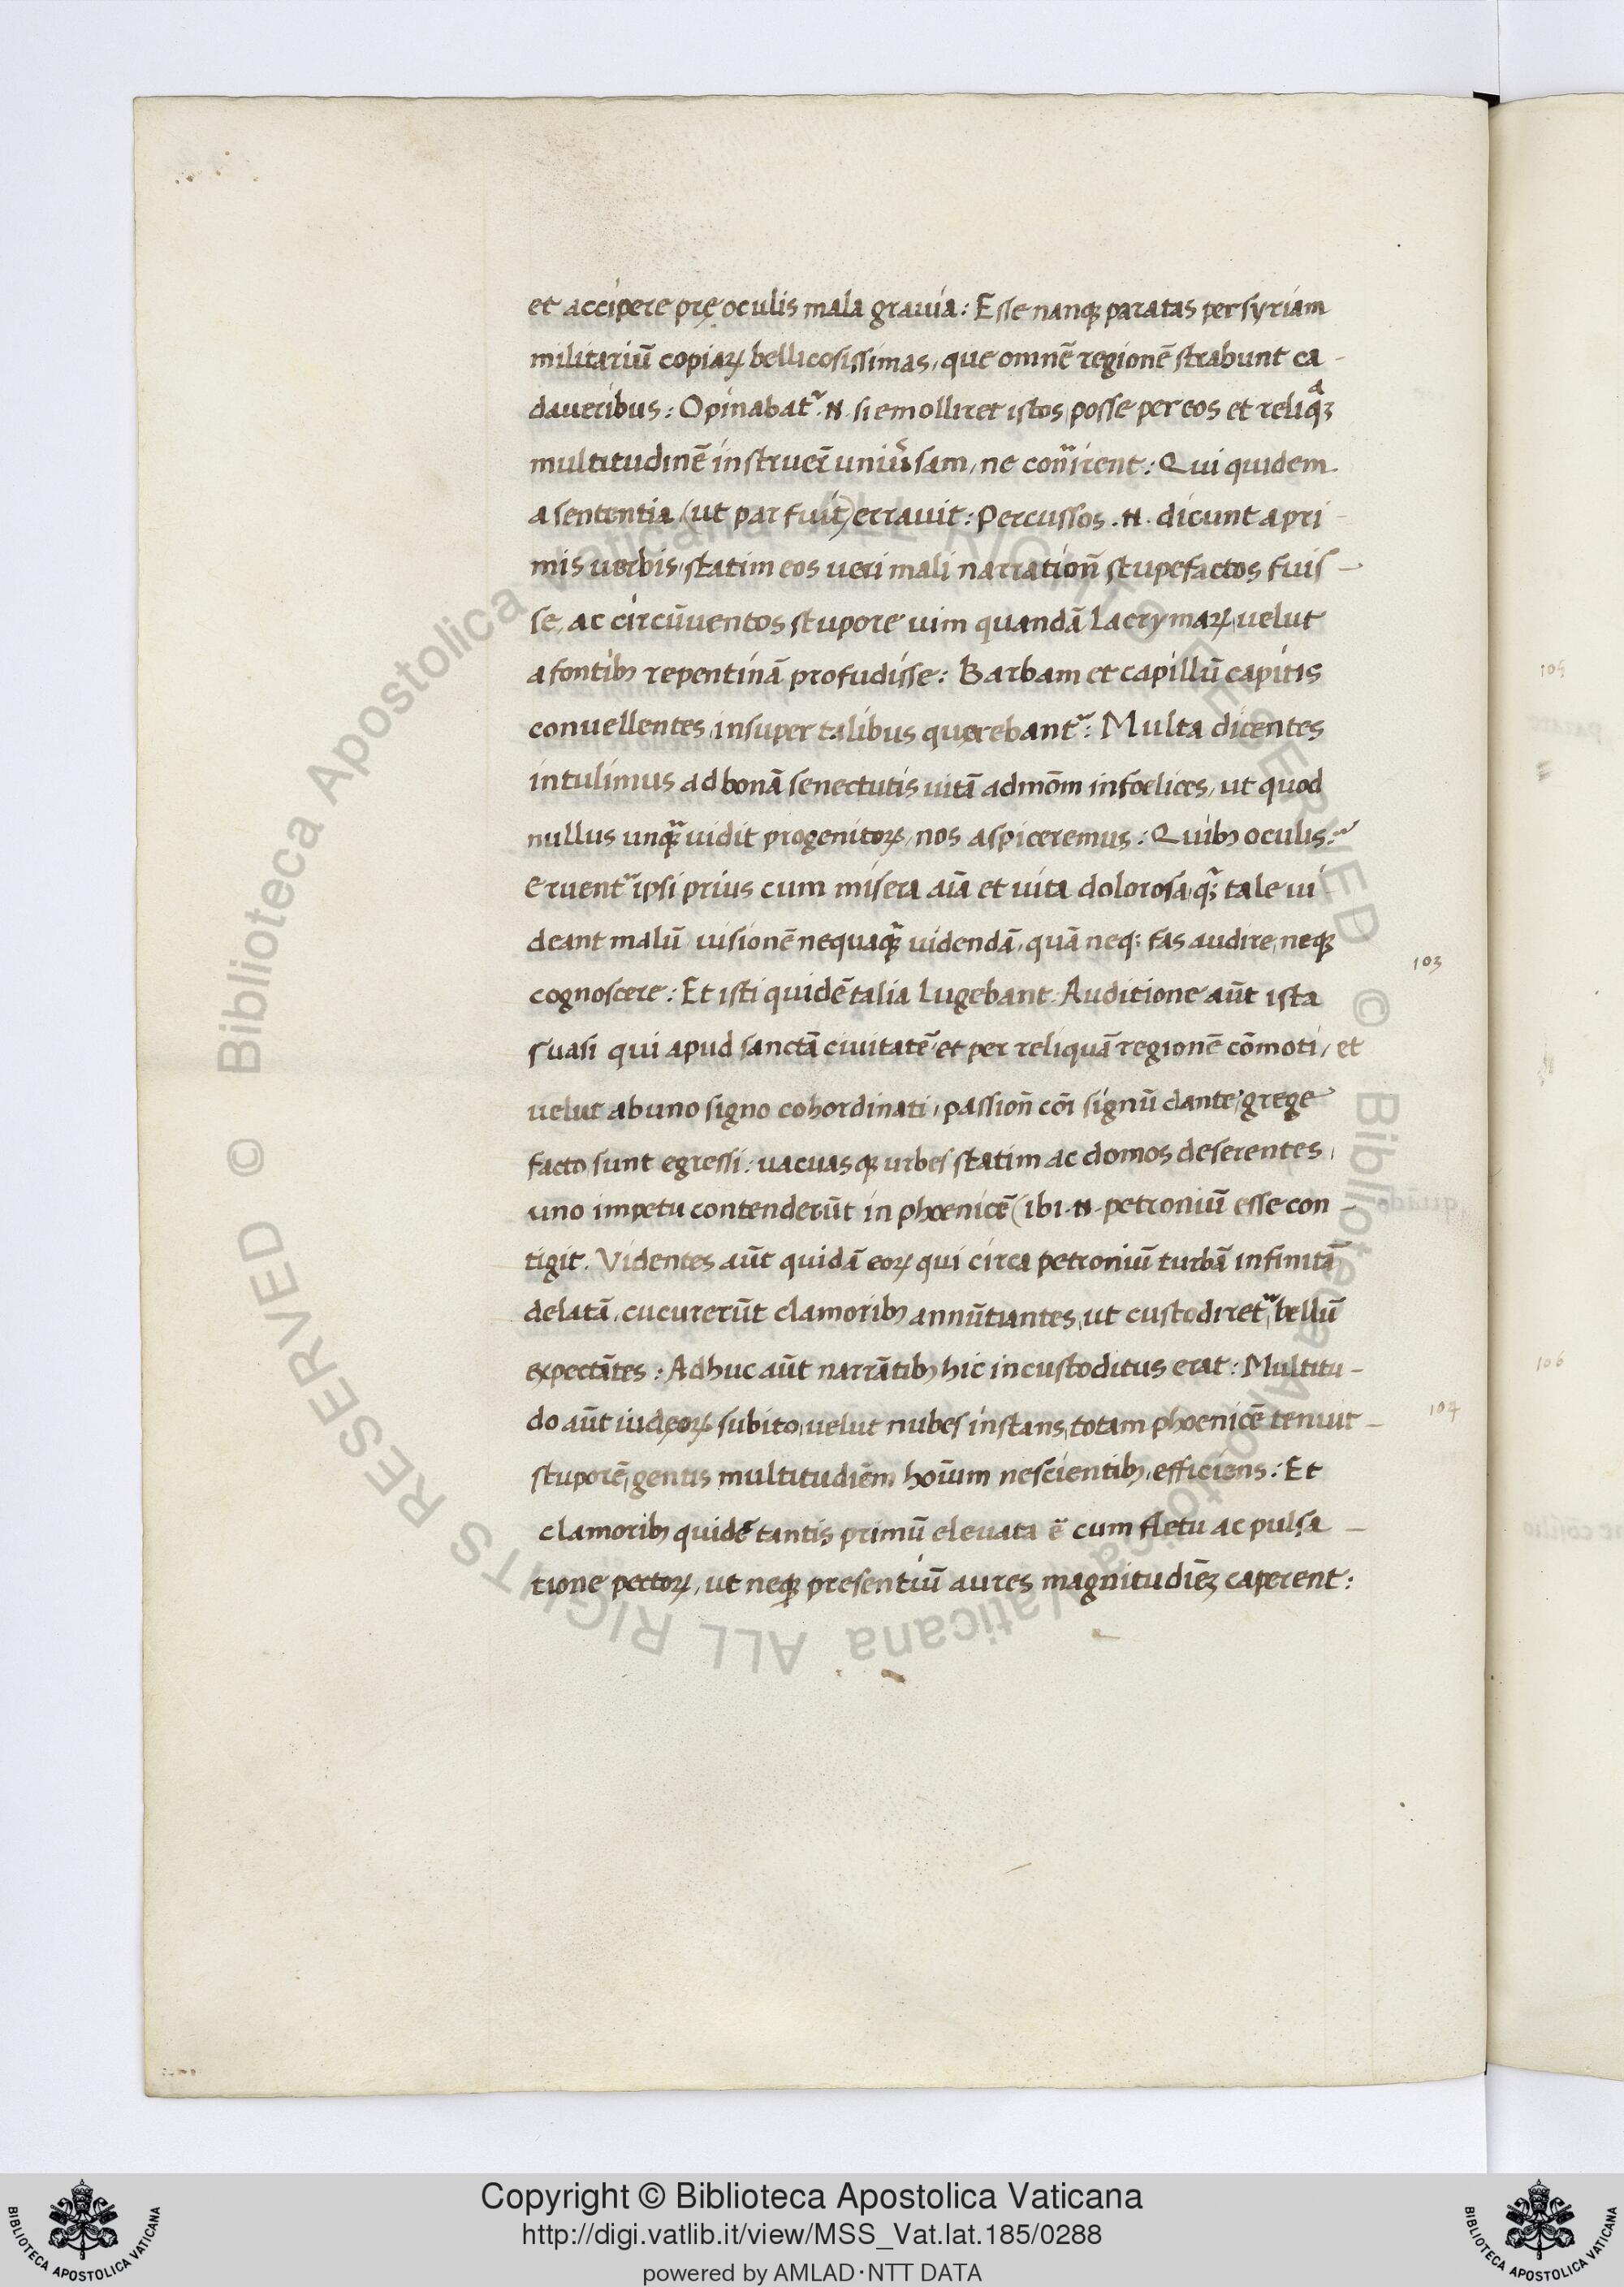 et accipere prę oculis mala grauia: Esse nanqꝫ paratas per syriam
militariũ copiaꝝ bellicosissimas, que omnẽ regionẽ strabunt ca-
daueribus: Opinabatᷣ .N. si emolliret istos, posse per eos et reliqᵃꝫ
multitudinẽ instruer̃ uniũsam, ne conᷣirent: Qui quidem
a sententia (ut par fuit) errauit: Percussos .N. dicunt a pri-
mis uerbis, statim eos ueri mali narration̄ stupefactos fuis-
se, ac circũuentos stupore uim quandã Lacrymaꝝ, velut
a fontibꝫ repentinã profudisse: Barbam et capillũ capitis
conuellentes, insuper talibus querebantᷣ: Multa dicentes
intulimus ad bonã senectutis uitã admõm infoelices, ut quod
nullus unqᷓ uidit progenitoꝝ, nos aspiceremus: Quibꝫ oculis:
Eruentᷣ ipsi prius cum misera aĩa et uita dolorosa, qᷓꝫ tale ui
deant malũ uisionẽ nequaqᷓ uidendã, quã neqꝫ fas audire, neqꝫ
cognoscere: Et isti quidẽ talia Lugebant: Auditione aũt ista
suasi qui apud sanctã ciuitatẽ, et per reliquã regionẽ cõmoti, et
velut ab uno signo cohordinati, passion̄ cõi signũ dante, grege
facto, sunt egressi: uacuasqꝫ urbes statim ac domos deserentes,
uno impetu contenderũt in phoenicẽ (ibi .N. petroniũ esse con-
tigit. Videntes aũt quidã eoꝝ qui circa petroniũ turbã infinitã
delatã, cucurerũt clamoribꝫ annũtiantes, ut custodiretᷣ, bellũ
expectãtes: Adhuc aũt narrãtibꝫ hic incustoditus erat: Multitu-
do aũt iudęoꝝ subito, velut nubes instans, totam phoenicẽ tenuit-
stuporẽ, gentis multitudiẽm hoĩum nescientibꝫ, efficiens: Et
clamoribꝫ quidẽ tantis primũ eleuata ẽ cum fletu ac pulsa-
tione pectoꝝ, ut neqꝫ presentiũ aures magnitudiẽꝫ caperent:
103
104
105
106
© Biblioteca Apostolica Vaticana ALL RIGHTS RESERVED © Biblioteca Apostolica Vaticana ALL RIGHTS RESERVED
Copyright © Biblioteca Apostolica Vaticana
http://digi.vatlib.it/view/MSS_Vat.lat.185/0288
powered by AMLAD·NTT DATA
BIBLIOTECA APOSTOLICA VATICANA
BIBLIOTECA APOSTOLICA VATICANA